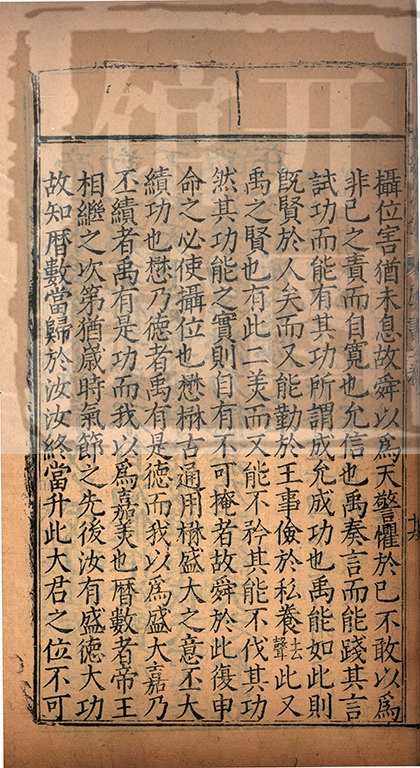 攝位害猶未息故舜以爲天警懼於己不敢以爲
非己之責而自寬也允信也禹奏言而能踐其言
試功而能有其功所謂成允成功也禹能如此則
旣賢於人矣而又能勤於王事儉於私養去聲此又
禹之賢也有此二美而又能不矜其能不伐其功
然其功能之實則自有不可掩者故舜於此復申
命之必使攝位也懋楙古通用楙盛大之意丕大
績功也懋乃德者禹有是德而我以爲盛大嘉乃
丕績者禹有是功而我以爲嘉美也曆數者帝王
相繼之次第猶歲時氣節之先後汝有盛德大功
故知曆數當歸於汝汝終當升此大君之位不可